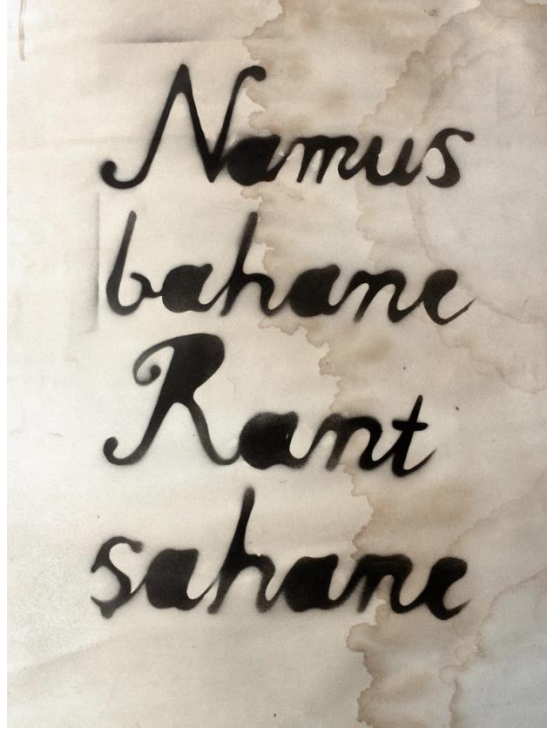 Namus
bahane
Rant
sahane